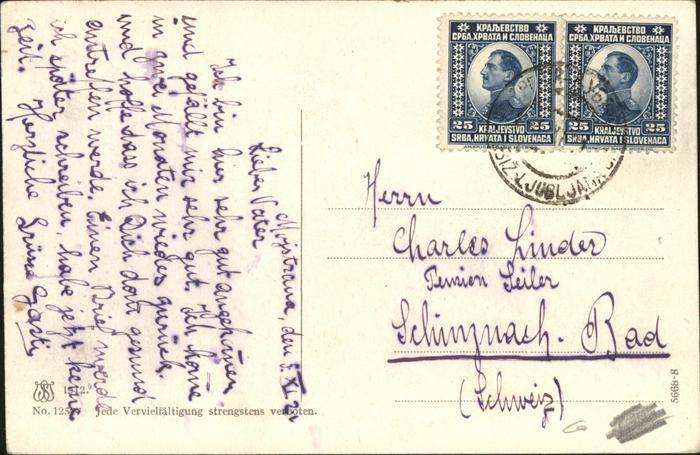 КРАЉЕВСТВО
СРБА, ХРВАТА И СЛОВЕНАЦА
25 KRALJEVSTVO 25
SRBA, HRVATA I SLOVENACA
КРАЉЕВСТВО
СРБА, ХРВАТА И СЛОВЕНАЦА
25 KRALJEVSTVO 25
SRBA, HRVATA I SLOVENACA
LJUBLJANA
Mojstrana, den XI
Lieber Vater
Ich bin hier sehr gut angekommen
und gefällt mir sehr gut. Ich komme
in zwei Monaten wieder zurück
und hoffe dass ich Dich dort gesund
antreffen werde. Einen Brief werde
ich später schreiben, habe jetzt keine
Zeit. Herzliche Grüsse
Herrn
Charles Linder
Pension Seiler
Schinznach-Bad
(Schweiz)
1912.
No. 125 Jede Vervielfältigung strengstens verboten.
5668-8